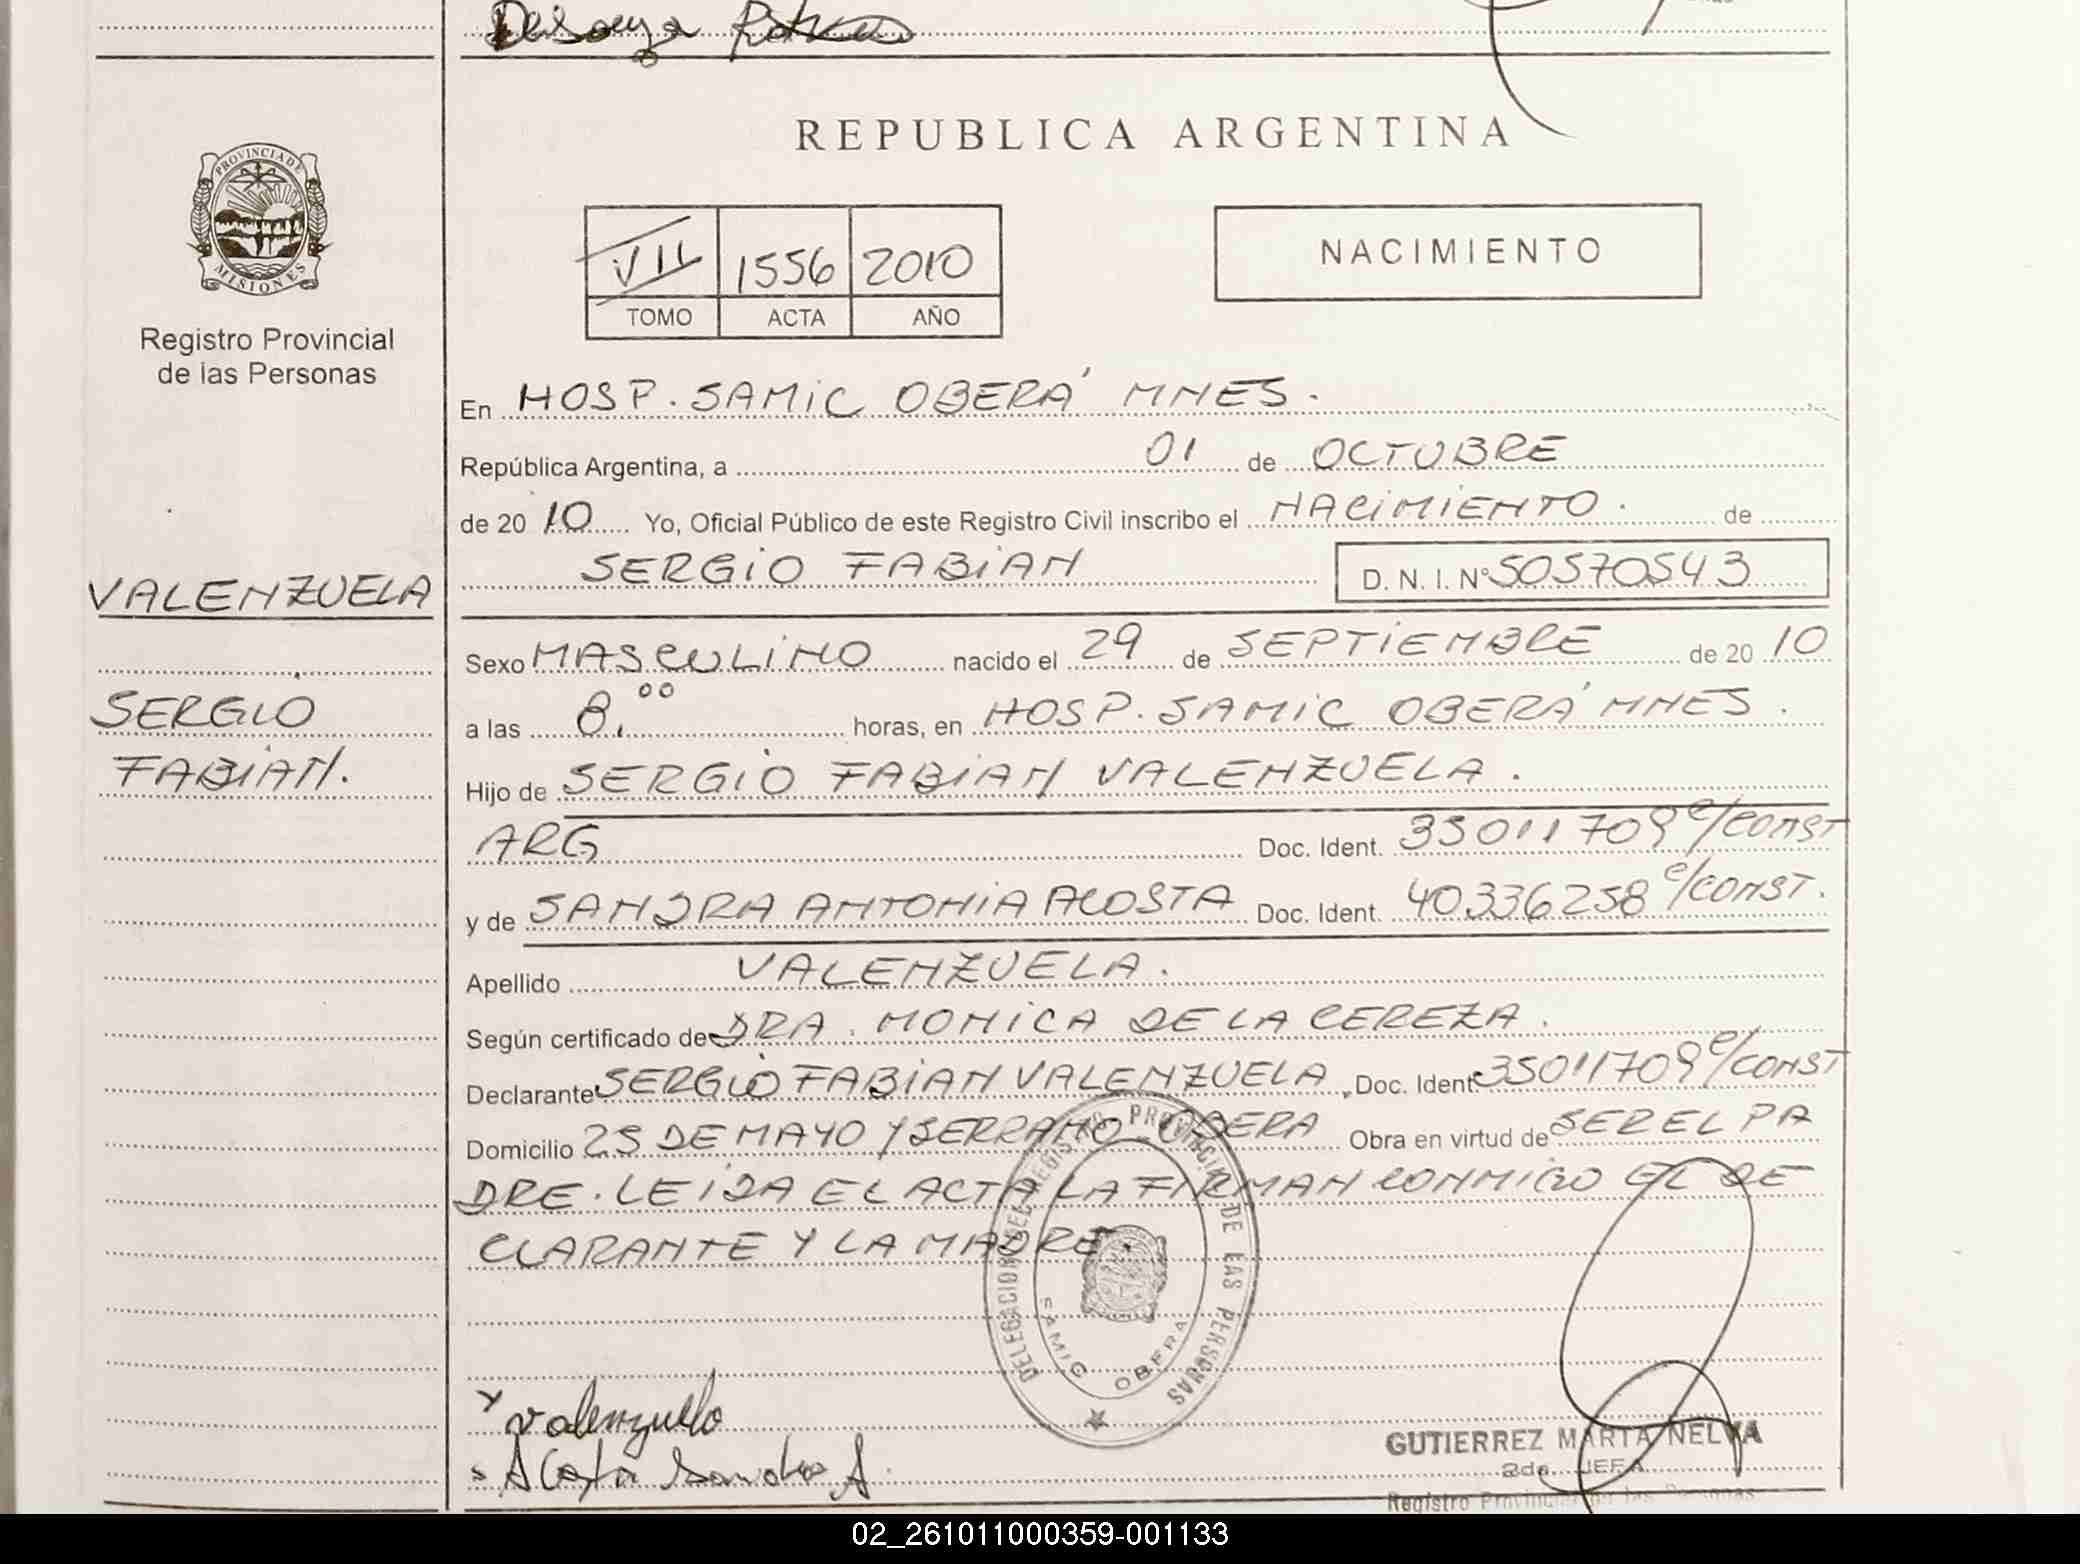 Desouza
REPUBLICA ARGENTINA
PROVINCIA DE MISIONES
Registro Provincial
de las Personas
VII 1556 2010
TOMO ACTA AÑO
NACIMIENTO
En HOSP. SAMIC OBERÁ MNES.
República Argentina, a 01 de OCTUBRE
de 20 10 Yo, Oficial Público de este Registro Civil inscribo el NACIMIENTO. de
SERGIO FABIAN D. N. I. N° 50570543
VALENZUELA
SERGIO
FABIAN.
Sexo MASCULINO nacido el 29 de SEPTIEMBRE de 20 10
a las 8.00 horas, en HOSP. SAMIC OBERÁ MNES.
Hijo de SERGIO FABIAN VALENZUELA.
ARG Doc. Ident. 35011709 c/CONST
y de SANDRA ANTONIA ACOSTA Doc. Ident. 40336258 c/CONST.
Apellido VALENZUELA.
Según certificado de DRA. MONICA DE LA CEREZA.
Declarante SERGIO FABIAN VALENZUELA Doc. Ident. 35011709 c/CONST
Domicilio 25 DE MAYO Y SERRANO - OBERA Obra en virtud de SER EL PA
DRE. LEIDA EL ACTA LA FIRMAN CONMIGO EL DE
CLARANTE Y LA MADRE.
DELEGACION DEL REGISTRO PROVINCIAL DE LAS PERSONAS
SAMIC OBERA
Valenzuelo
Acosta Sandra A
GUTIERREZ MARTA NELVA
2da. JEFA
Registro Provincial de las Personas
02_261011000359-001133